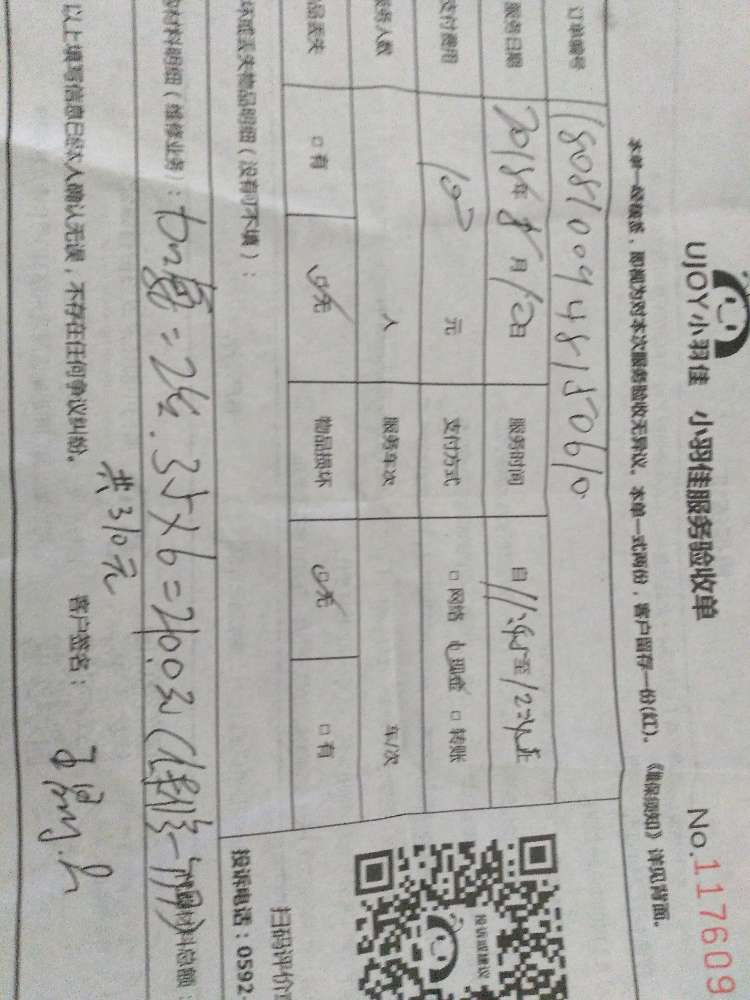 UJOY小羽佳 小羽佳服务验收单
No.117609
本单一经签签，即视为对本次服务验收无异议。本单一式两份，客户留存一份(红)。《维保须知》详见背面。
订单编号 1808100948150610
服务日期 2018年8月10日 服务时间 自11:45至12:45止
支付费用 100元 支付方式 □网络 ☑现金 □转账
服务人数 人 服务车次 车/次
品丢失 □有 ☑无 物品损坏 ☑无 □有
坏或丢失物品明细（没有可不填）：
材料明细（维修业务）： 加氟=2台.35×6=210.0元 材料总额：
共310元
以上填写信息已经本人确认无误，不存在任何争议纠纷。 客户签名：
投诉建议
扫码评价
投诉电话：0592-